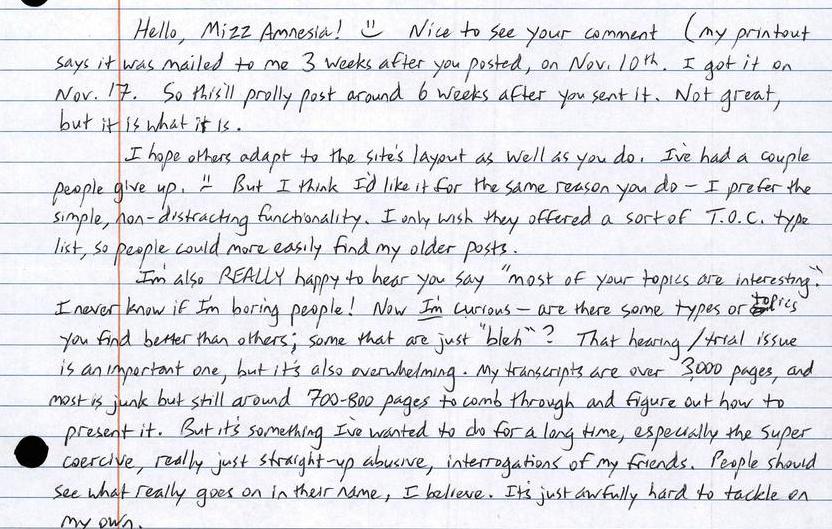 Hello, Mizz Amnesia! Nice to see your comment (my printout
says it was mailed to me 3 weeks after you posted, on Nov. 10th. I got it on
Nov. 17. So this'll prolly post around 6 weeks after you sent it. Not great,
but it is what it is.
I hope others adapt to the site's layout as well as you do. I've had a couple
people give up. But I think I'd like it for the same reason you do – I prefer the
simple, non-distracting functionality. I only wish they offered a sort of T.O.C. type
list, so people could more easily find my older posts.
I'm also REALLY happy to hear you say "most of your topics are interesting."
I never know if I'm boring people! Now I'm curious – are there some types or topics
you find better than others; some that are just "bleh"? That hearing/trial issue
is an important one, but it's also overwhelming. My transcripts are over 3,000 pages, and
most is junk but still around 700-800 pages to comb through and figure out how to
present it. But it's something I've wanted to do for a long time, especially the super
coercive, really just straight-up abusive, interrogations of my friends. People should
see what really goes on in their name, I believe. It's just awfully hard to tackle on
my own.